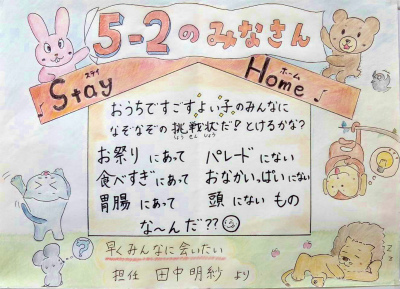 5-2のみなさん
ステイ ホーム
♪Stay Home♪
おうちですごすよい子のみんなに
なぞなぞの挑戦状だ!とけるかな?
ちょうせんじょう
お祭りにあって パレードにない
食べすぎにあって おなかいっぱいにない
胃腸にあって 頭にない もの
な〜んだ??
?
早くみんなに会いたい
担任 田中明紗 より
zzz